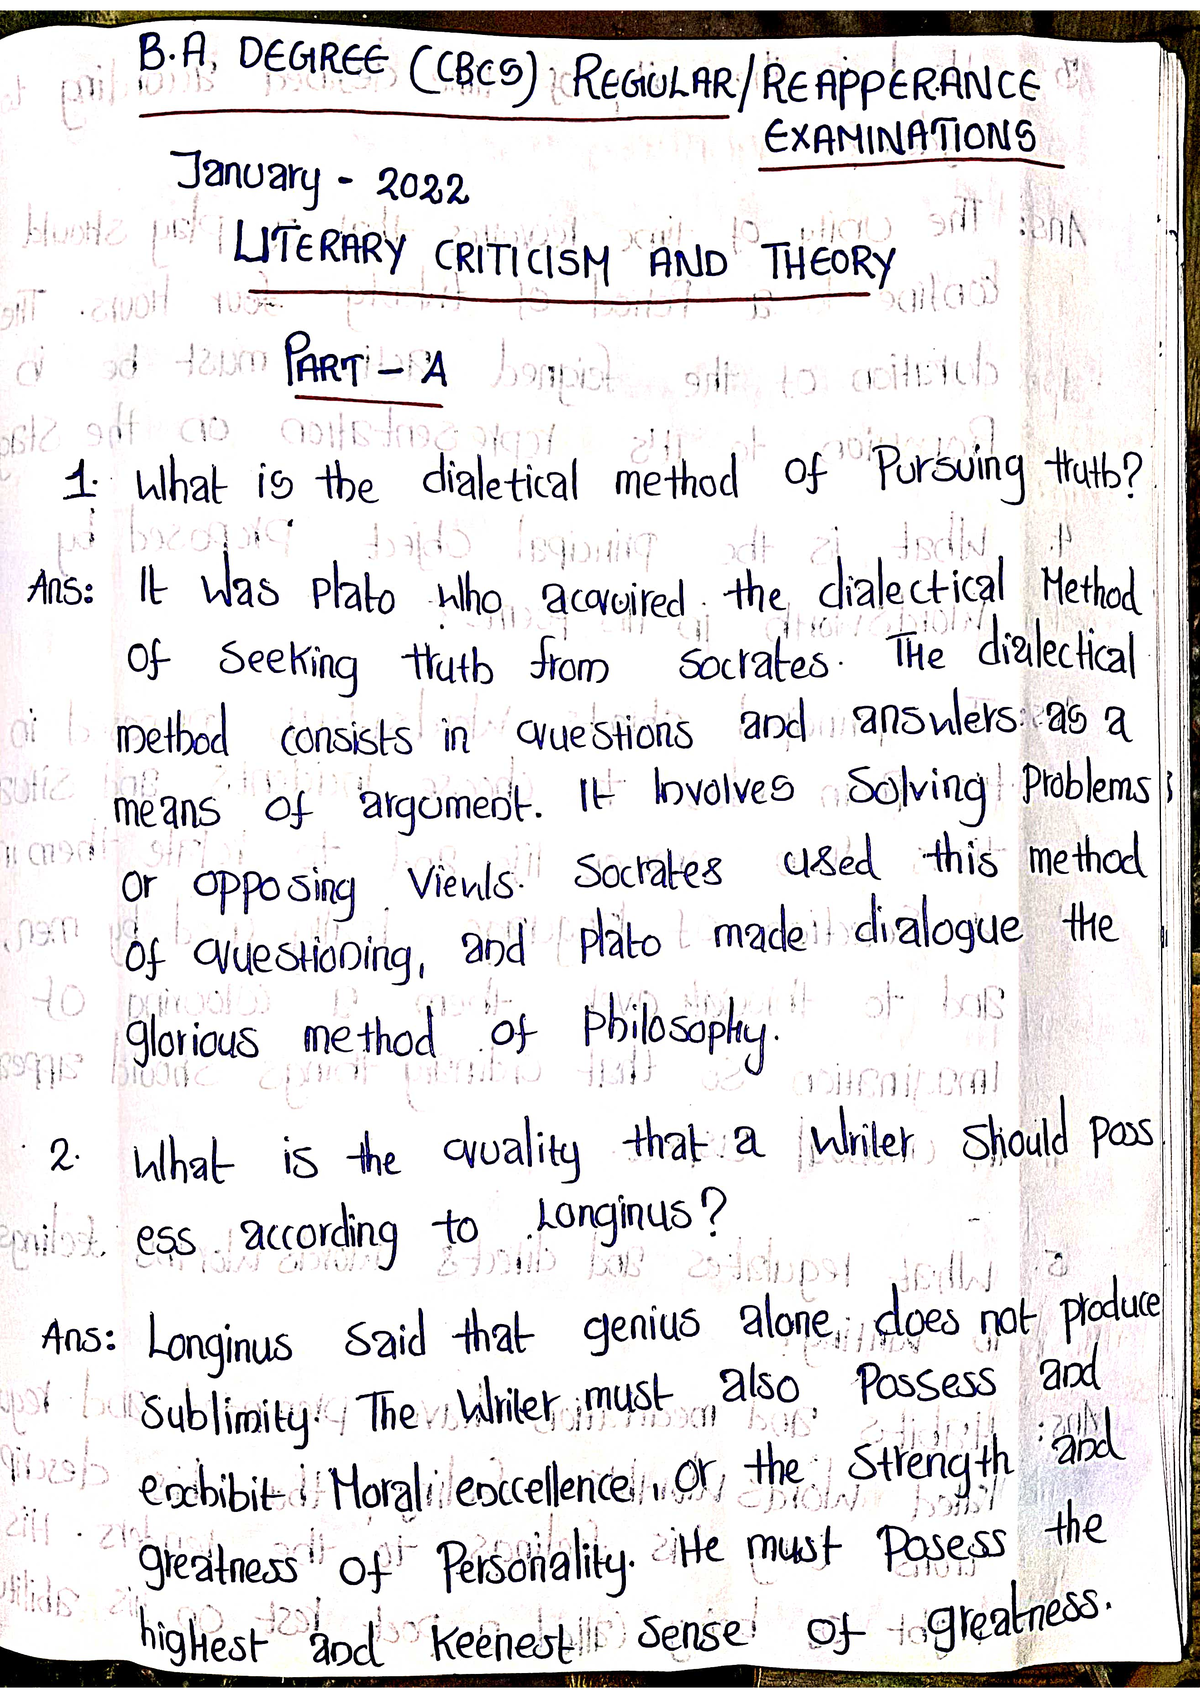 B.A. DEGREE (CBCS) REGULAR/REAPPERANCE
EXAMINATIONS
January - 2022
LITERARY CRITICISM AND THEORY
PART - A
1. What is the dialetical method of Pursuing truth?
Ans: It was Plato who acquired the dialectical Method
of Seeking truth from Socrates. THe dialectical
method consists in questions and answers as a
means of argument. It Involves Solving Problems
or opposing Views. Socrates used this method
of questioning, and Plato made dialogue the
glorious method of Philosophy.
2. What is the quality that a Writer Should poss
ess according to Longinus?
Ans: Longinus Said that genius alone does not produce
Sublimity. The Writer must also Possess and
exhibit Moral excellence, or the Strength and
greatness of Personality. He must Posess the
highest and Keenest Sense of greatness.